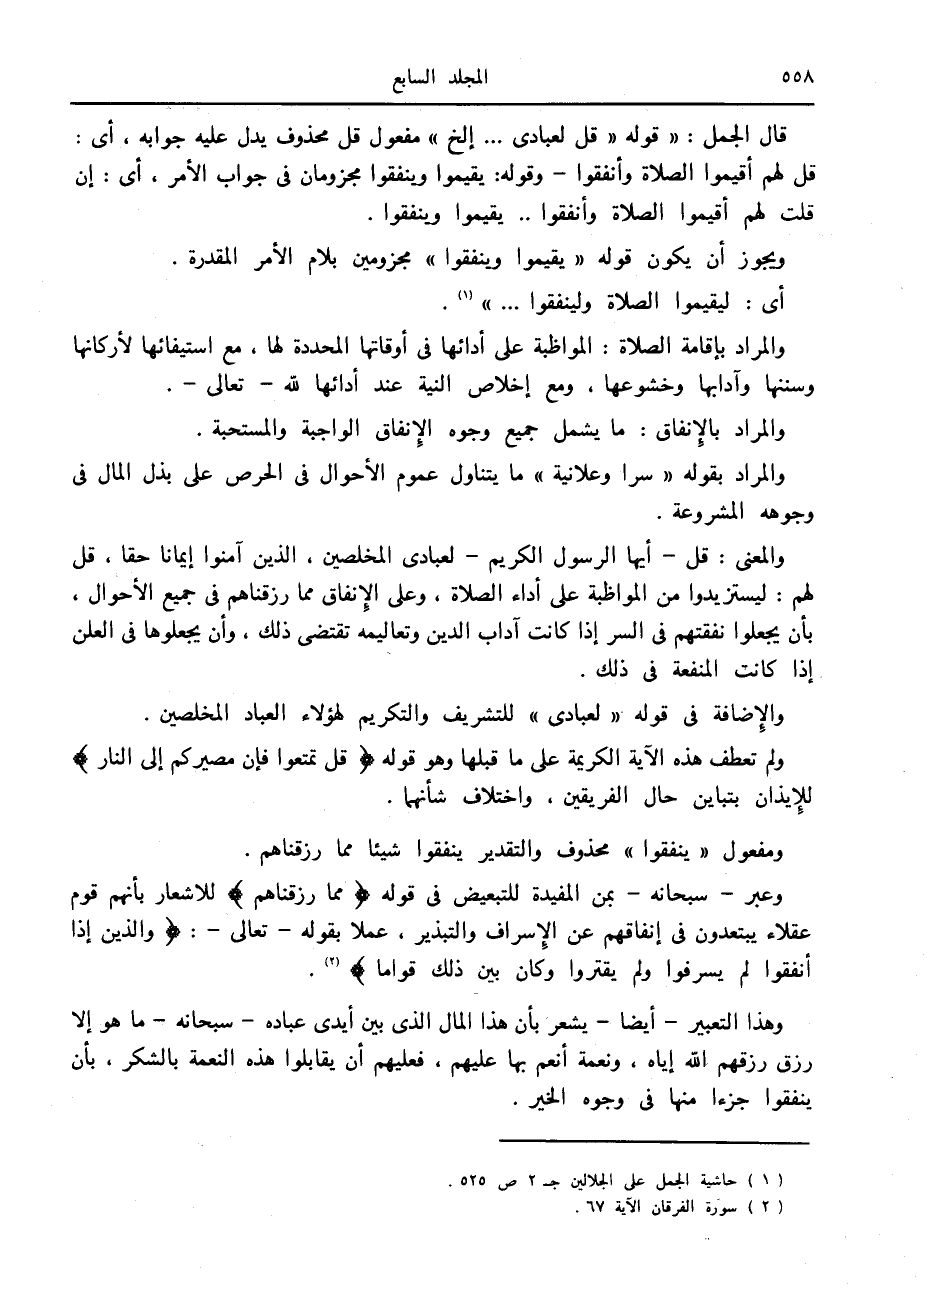 ٥٥٨ المجلد السابع
قال الجمل : « قوله « قل لعبادى ... إلخ » مفعول قل محذوف يدل عليه جوابه ، أى :
قل لهم أقيموا الصلاة وأنفقوا – وقوله: يقيموا وينفقوا مجزومان فى جواب الأمر ، أى : إن
قلت لهم أقيموا الصلاة وأنفقوا .. يقيموا وينفقوا .
ويجوز أن يكون قوله « يقيموا وينفقوا » مجزومين بلام الأمر المقدرة .
أى : ليقيموا الصلاة ولينفقوا ... » (١) .
والمراد بإقامة الصلاة : المواظبة على أدائها فى أوقاتها المحددة لها ، مع استيفائها لأركانها
وسننها وآدابها وخشوعها ، ومع إخلاص النية عند أدائها لله – تعالى – .
والمراد بالإنفاق : ما يشمل جميع وجوه الإنفاق الواجبة والمستحبة .
والمراد بقوله « سرا وعلانية » ما يتناول عموم الأحوال فى الحرص على بذل المال فى
وجوهه المشروعة .
والمعنى : قل – أيها الرسول الكريم – لعبادى المخلصين ، الذين آمنوا إيمانا حقا ، قل
لهم : ليستزيدوا من المواظبة على أداء الصلاة ، وعلى الإنفاق مما رزقناهم فى جميع الأحوال ،
بأن يجعلوا نفقتهم فى السر إذا كانت آداب الدين وتعاليمه تقتضى ذلك ، وأن يجعلوها فى العلن
إذا كانت المنفعة فى ذلك .
والإضافة فى قوله « لعبادى » للتشريف والتكريم لهؤلاء العباد المخلصين .
ولم تعطف هذه الآية الكريمة على ما قبلها وهو قوله ﴿ قل تمتعوا فإن مصيركم إلى النار ﴾
للإيذان بتباين حال الفريقين ، واختلاف شأنهما .
ومفعول « ينفقوا » محذوف والتقدير ينفقوا شيئا مما رزقناهم .
وعبر – سبحانه – بمن المفيدة للتبعيض فى قوله ﴿ مما رزقناهم ﴾ للاشعار بأنهم قوم
عقلاء يبتعدون فى إنفاقهم عن الإسراف والتبذير ، عملا بقوله – تعالى – : ﴿ والذين إذا
أنفقوا لم يسرفوا ولم يقتروا وكان بين ذلك قواما ﴾ (٢) .
وهذا التعبير – أيضا – يشعر بأن هذا المال الذى بين أيدى عباده – سبحانه – ما هو إلا
رزق رزقهم الله إياه ، ونعمة أنعم بها عليهم ، فعليهم أن يقابلوا هذه النعمة بالشكر ، بأن
ينفقوا جزءا منها فى وجوه الخير .
( ١ ) حاشية الجمل على الجلالين جـ ٢ ص ٥٢٥ .
( ٢ ) سورة الفرقان الآية ٦٧ .